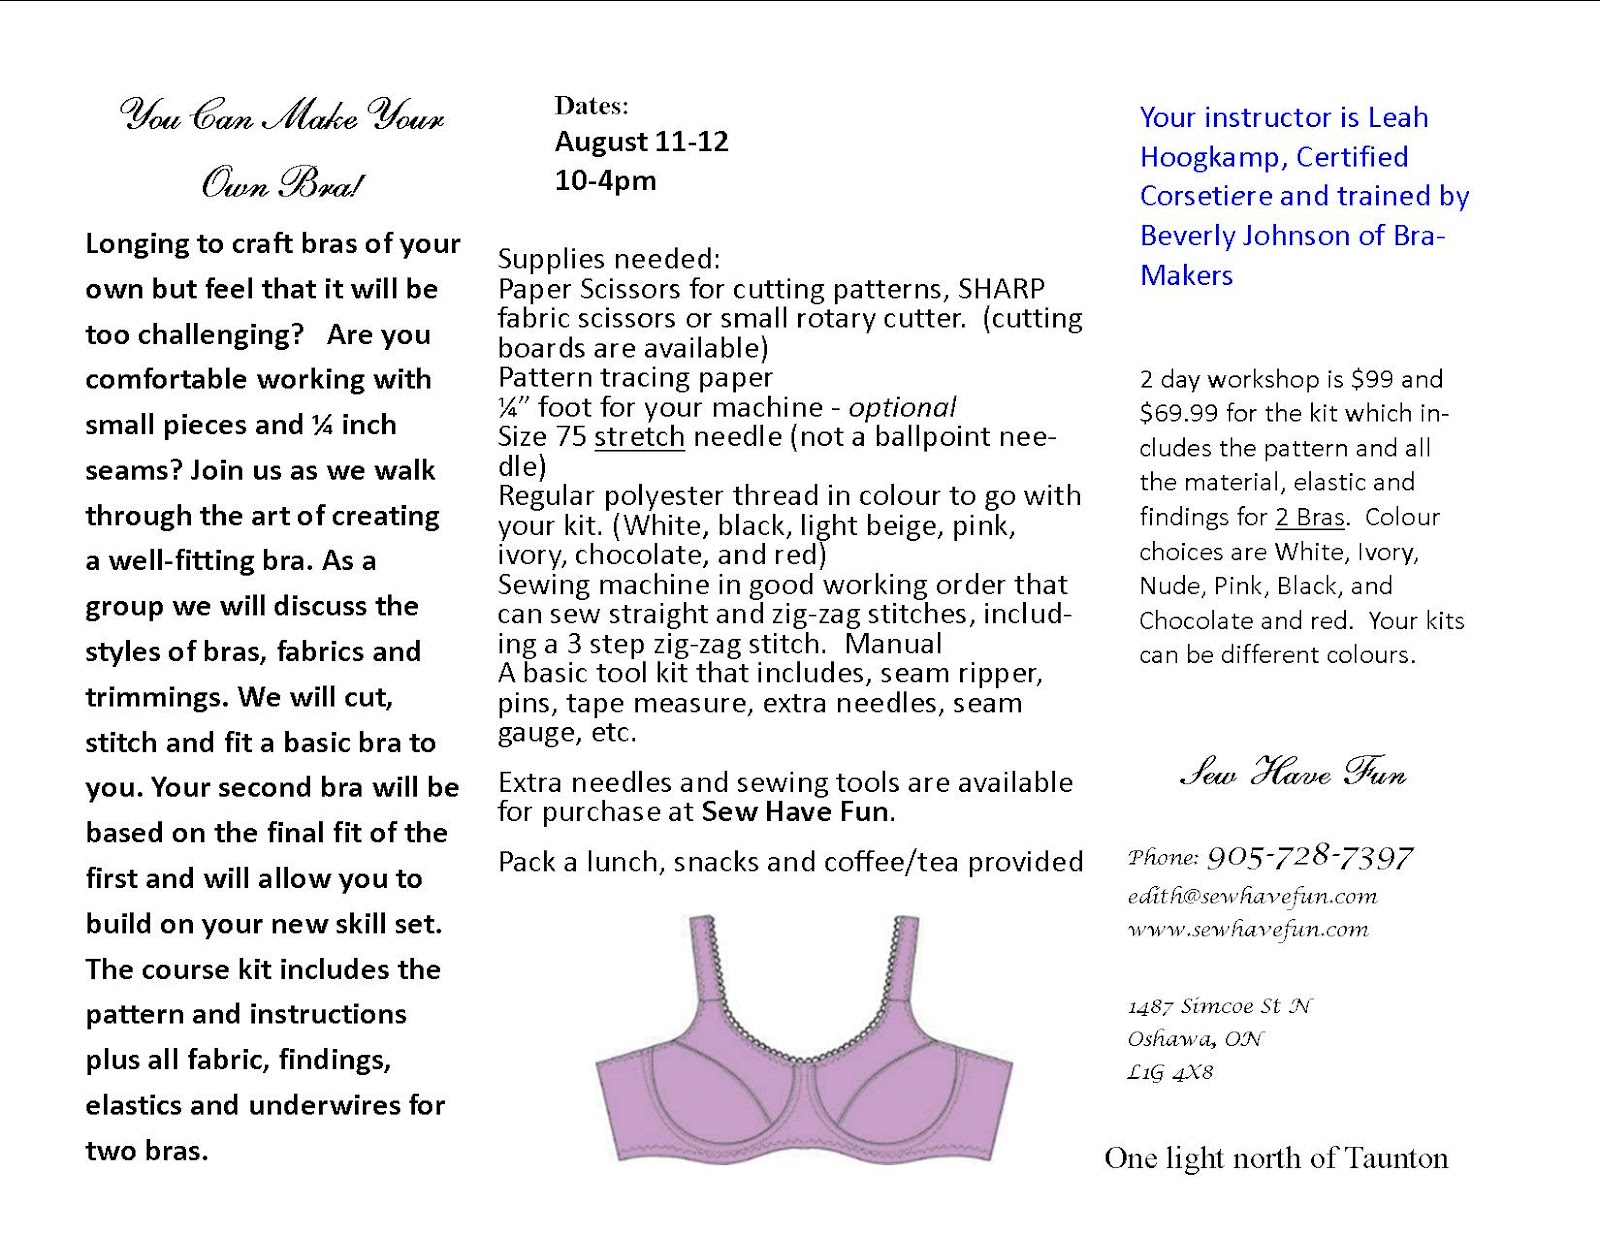 You Can Make Your
Own Bra!
Longing to craft bras of your
own but feel that it will be
too challenging?   Are you
comfortable working with
small pieces and ¼ inch
seams? Join us as we walk
through the art of creating
a well-fitting bra. As a
group we will discuss the
styles of bras, fabrics and
trimmings. We will cut,
stitch and fit a basic bra to
you. Your second bra will be
based on the final fit of the
first and will allow you to
build on your new skill set.
The course kit includes the
pattern and instructions
plus all fabric, findings,
elastics and underwires for
two bras.
Dates:
August 11-12
10-4pm
Supplies needed:
Paper Scissors for cutting patterns, SHARP
fabric scissors or small rotary cutter.  (cutting
boards are available)
Pattern tracing paper
¼” foot for your machine - optional
Size 75 stretch needle (not a ballpoint nee-
dle)
Regular polyester thread in colour to go with
your kit. (White, black, light beige, pink,
ivory, chocolate, and red)
Sewing machine in good working order that
can sew straight and zig-zag stitches, includ-
ing a 3 step zig-zag stitch.  Manual
A basic tool kit that includes, seam ripper,
pins, tape measure, extra needles, seam
gauge, etc.
Extra needles and sewing tools are available
for purchase at Sew Have Fun.
Pack a lunch, snacks and coffee/tea provided
Your instructor is Leah
Hoogkamp, Certified
Corsetiere and trained by
Beverly Johnson of Bra-
Makers
2 day workshop is $99 and
$69.99 for the kit which in-
cludes the pattern and all
the material, elastic and
findings for 2 Bras.  Colour
choices are White, Ivory,
Nude, Pink, Black, and
Chocolate and red.  Your kits
can be different colours.
Sew Have Fun
Phone: 905-728-7397
edith@sewhavefun.com
www.sewhavefun.com
1487 Simcoe St N
Oshawa, ON
L1G 4X8
One light north of Taunton